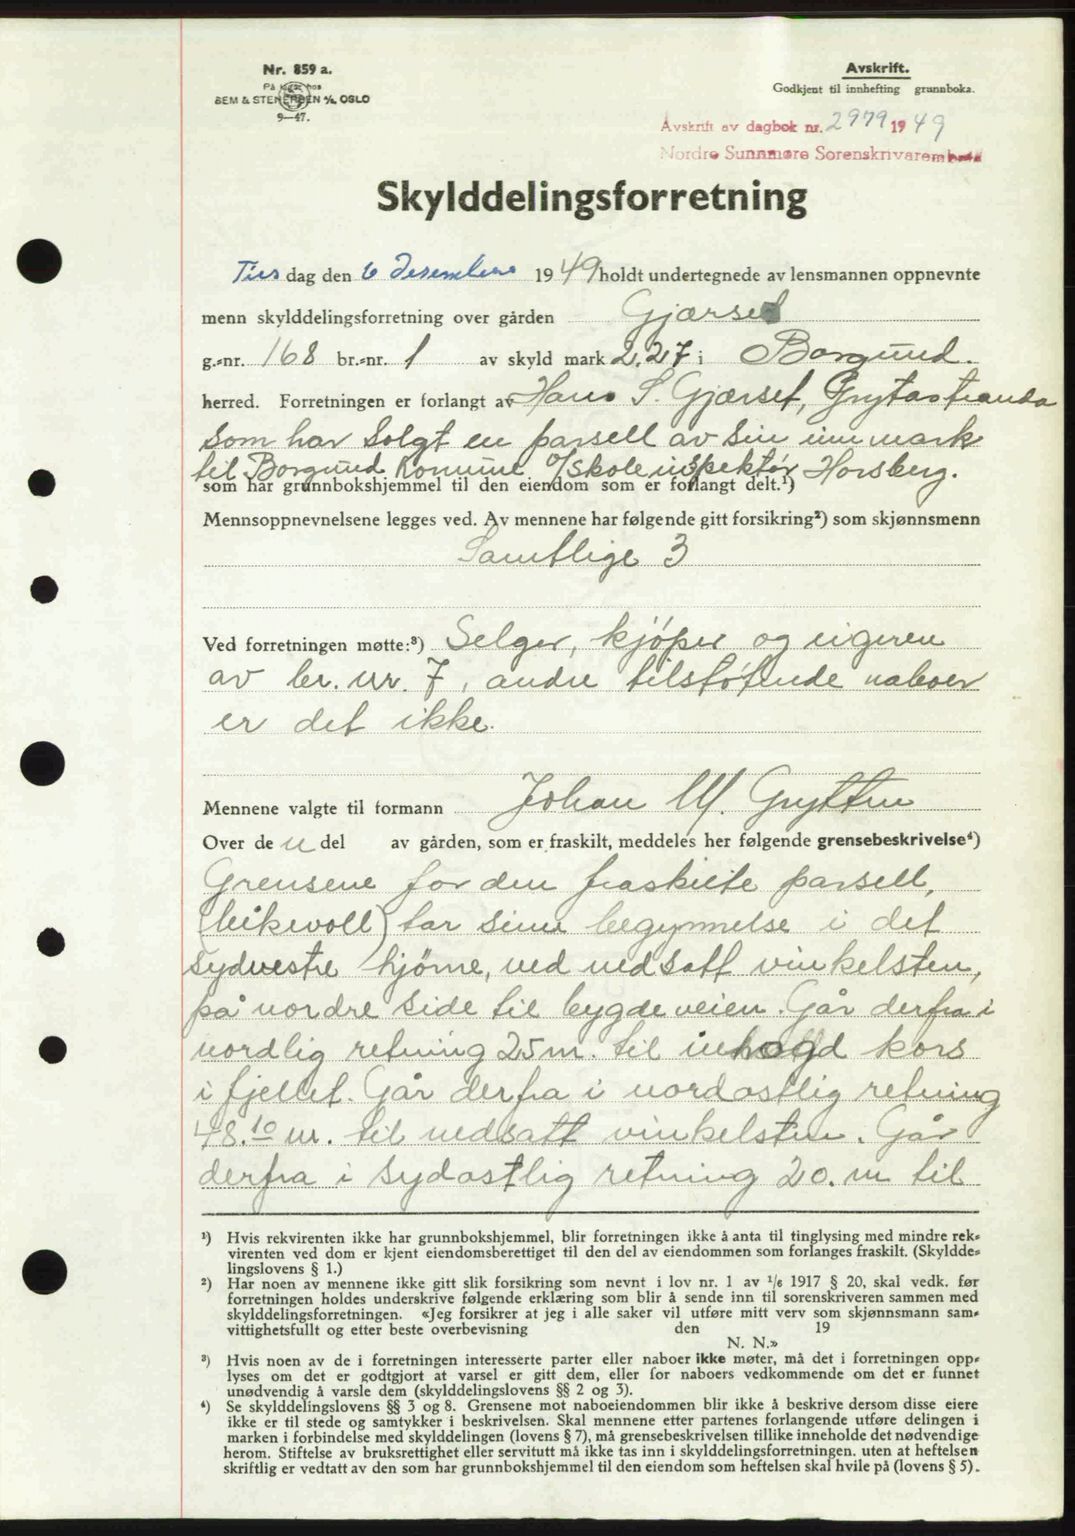 Nr. 859 a.
På lager hos
SEM & STENERSEN A/S, OSLO
9—47.
Avskrift.
Godkjent til innhefting grunnboka.
Avskrift av dagbok nr. 2979 1949
Nordre Sunnmøre Sorenskrivarembete
Skylddelingsforretning
Tirs dag den 6 desember 1949 holdt undertegnede av lensmannen oppnevnte
menn skylddelingsforretning over gården Gjærset
g.-nr. 168 br.-nr. 1 av skyld mark 2.27 i Borgund.
herred. Forretningen er forlangt av Hans S. Gjærset, Grytastranda
som har solgt en parsell av sin innmark
til Borgund Komune v/skoleinspektør Horsberg.
som har grunnbokshjemmel til den eiendom som er forlangt delt.¹)
Mennsoppnevnelsene legges ved. Av mennene har følgende gitt forsikring²) som skjønnsmenn
Samtlige 3
Ved forretningen møtte:³) Selger, kjøper og eigeren
av br. nr. 7, andre tilstøtende naboer
er det ikke.
Mennene valgte til formann Johan M. Grytten
Over de n del av gården, som er fraskilt, meddeles her følgende grensebeskrivelse⁴)
Grensene for den fraskilte parsell,
(leikvoll) tar sinn begynnelse i det
sydvestre hjørne, ved nedsatt vinkelsten,
på nordre side til bygdeveien. Går derfra i
nordlig retning 25 m. til inhogd kors
i fjellet. Går derfra i nordostlig retning
48.10 m. til nedsatt vinkelsten. Går
derfra i sydostlig retning 20. m til
¹) Hvis rekvirenten ikke har grunnbokshjemmel, blir forretningen ikke å anta til tinglysing med mindre rek-
virenten ved dom er kjent eiendomsberettiget til den del av eiendommen som forlanges fraskilt. (Skyldde-
lingslovens § 1.)
²) Har noen av mennene ikke gitt slik forsikring som nevnt i lov nr. 1 av 1/6 1917 § 20, skal vedk. før
forretningen holdes underskrive følgende erklæring som blir å sende inn til sorenskriveren sammen med
skylddelingsforretningen. «Jeg forsikrer at jeg i alle saker vil utføre mitt verv som skjønnsmann sam-
vittighetsfullt og etter beste overbevisning den 19
N. N.»
³) Hvis noen av de i forretningen interesserte parter eller naboer ikke møter, må det i forretningen opp-
lyses om det er godtgjort at varsel er gitt dem, eller for naboers vedkommende om det er funnet
unødvendig å varsle dem (skylddelingslovens §§ 2 og 3).
⁴) Se skylddelingslovens §§ 3 og 8. Grensene mot naboeiendommen blir ikke å beskrive dersom disse eiere
ikke er til stede og samtykker i beskrivelsen. Skal mennene etter partenes forlangende utføre delingen i
marken i forbindelse med skylddelingen (lovens § 7), må grensebeskrivelsen tillike inneholde det nødvendige
herom. Stiftelse av bruksrettighet eller servitutt må ikke tas inn i skylddelingsforretningen, uten at heftelsen
skriftlig er vedtatt av den som har grunnbokshjemmel til den eiendom som heftelsen skal hvile på (lovens § 5).